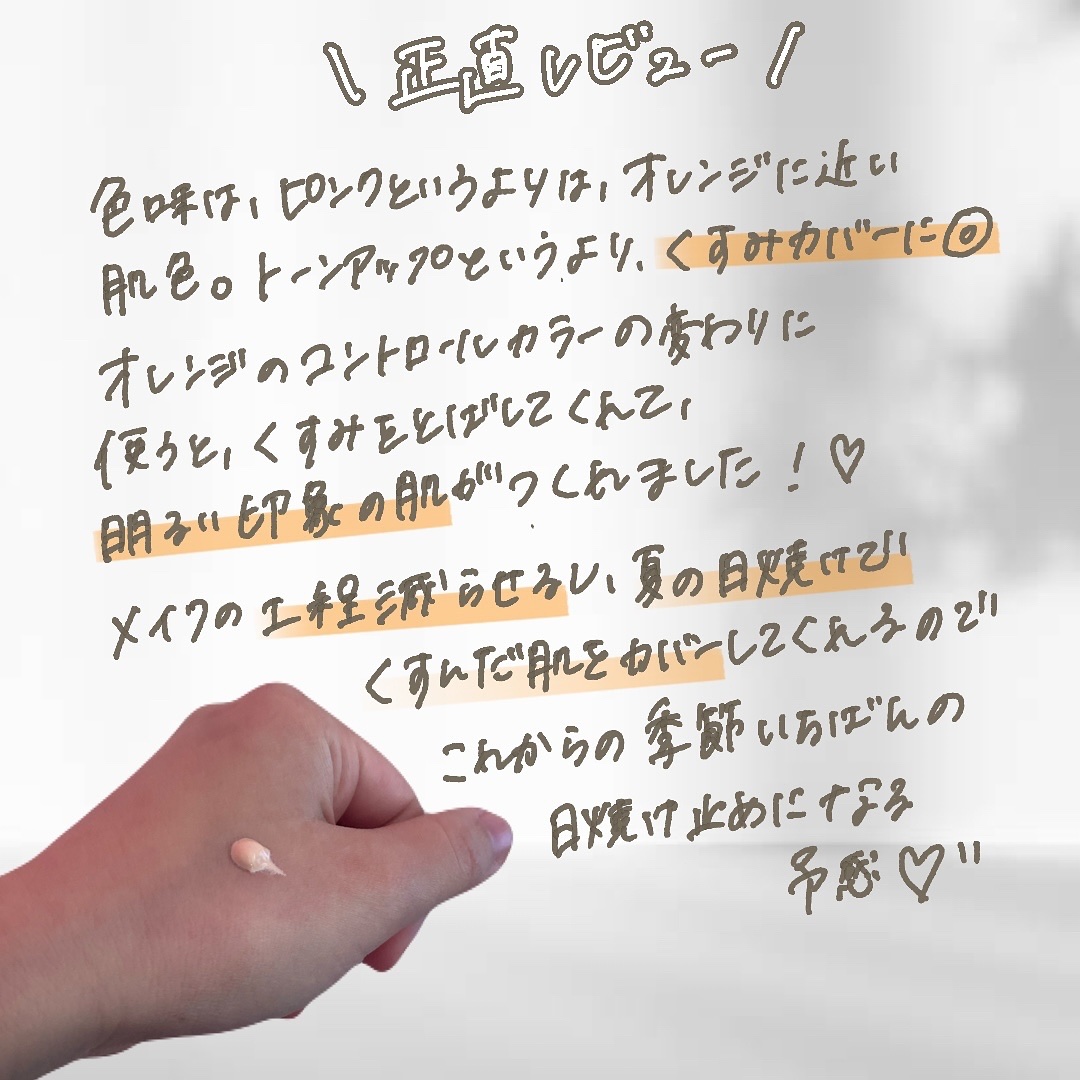 \ 正直レビュー /
色味は、ピンクというよりは、オレンジに近い
肌色。トーンアップというより、くすみカバーに◎
オレンジのコントロールカラーの変わりに
使うと、くすみをとばしてくれて、
明るい印象の肌がつくれました！♡
メイクの工程減らせるし、夏の日焼けで
くすんだ肌をカバーしてくれるので
これからの季節いちばんの
日焼け止めになる
予感♡"